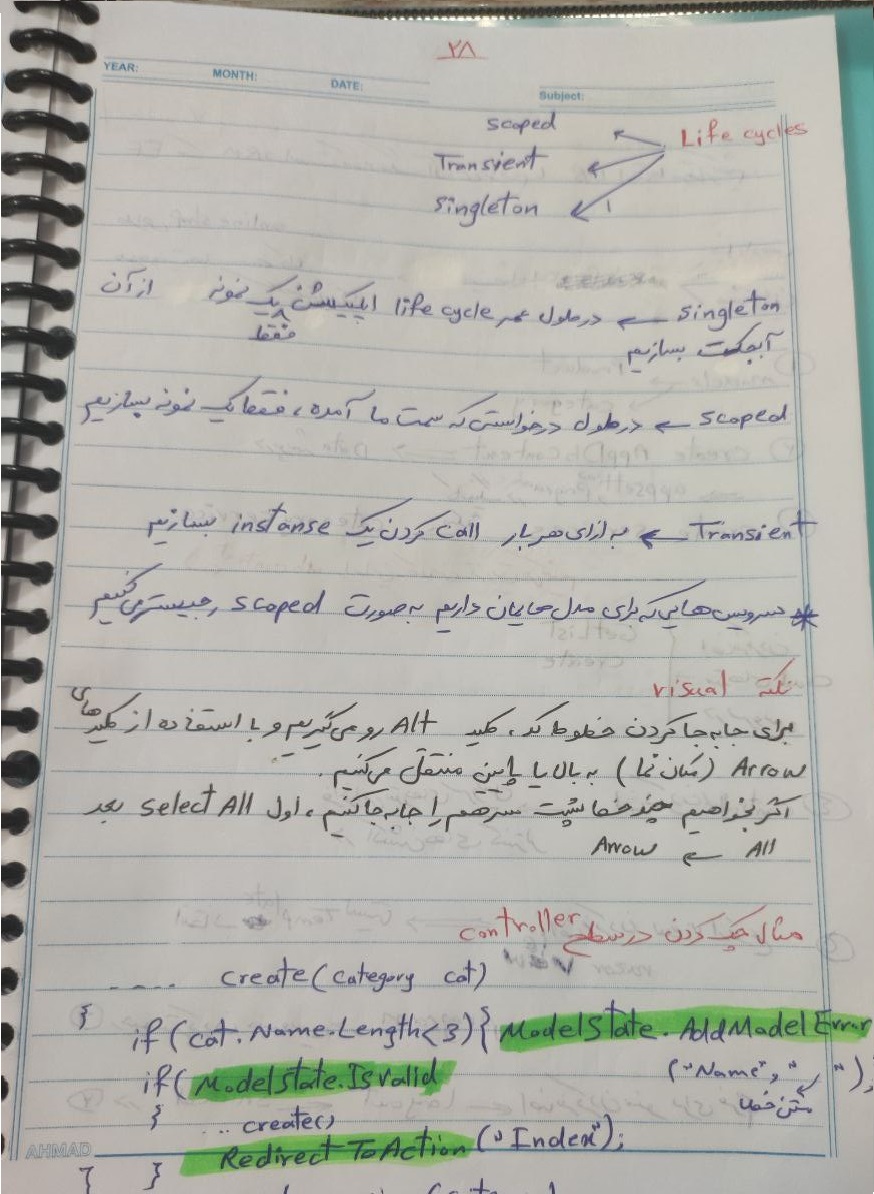 ۲۸
YEAR: MONTH: DATE: Subject:
Life cycles
scoped
Transient
singleton
singleton ← در طول عمر life cycle اپلیکیشن فقط یک نمونه از آن
آبجکت بسازیم
scoped ← در طول درخواستی که سمت ما آمده، فقط یک نمونه بسازیم
Transient ← به ازای هر بار call کردن یک instanse بسازیم
* سرویس هایی که برای مدل هایمان داریم به صورت scoped رجیستر می کنیم
نکته visual
برای جابه جا کردن خطوط کد، کلید Alt رو می گیریم و با استفاده از کلیدهای
Arrow (مکان نما) به بالا یا پایین منتقل می کنیم.
اگر بخواهیم چند خط پشت سر هم را جابه جا کنیم، اول select All بعد
All ← Arrow
مثال چک کردن در سطح controller
..... create(Category cat)
}
if(cat.Name.Length<3){ ModelState.AddModelError
("Name", " ");
متن خطا
if(ModelState.IsValid
} ... create()
Redirect ToAction("Index");
} }
AHMAD